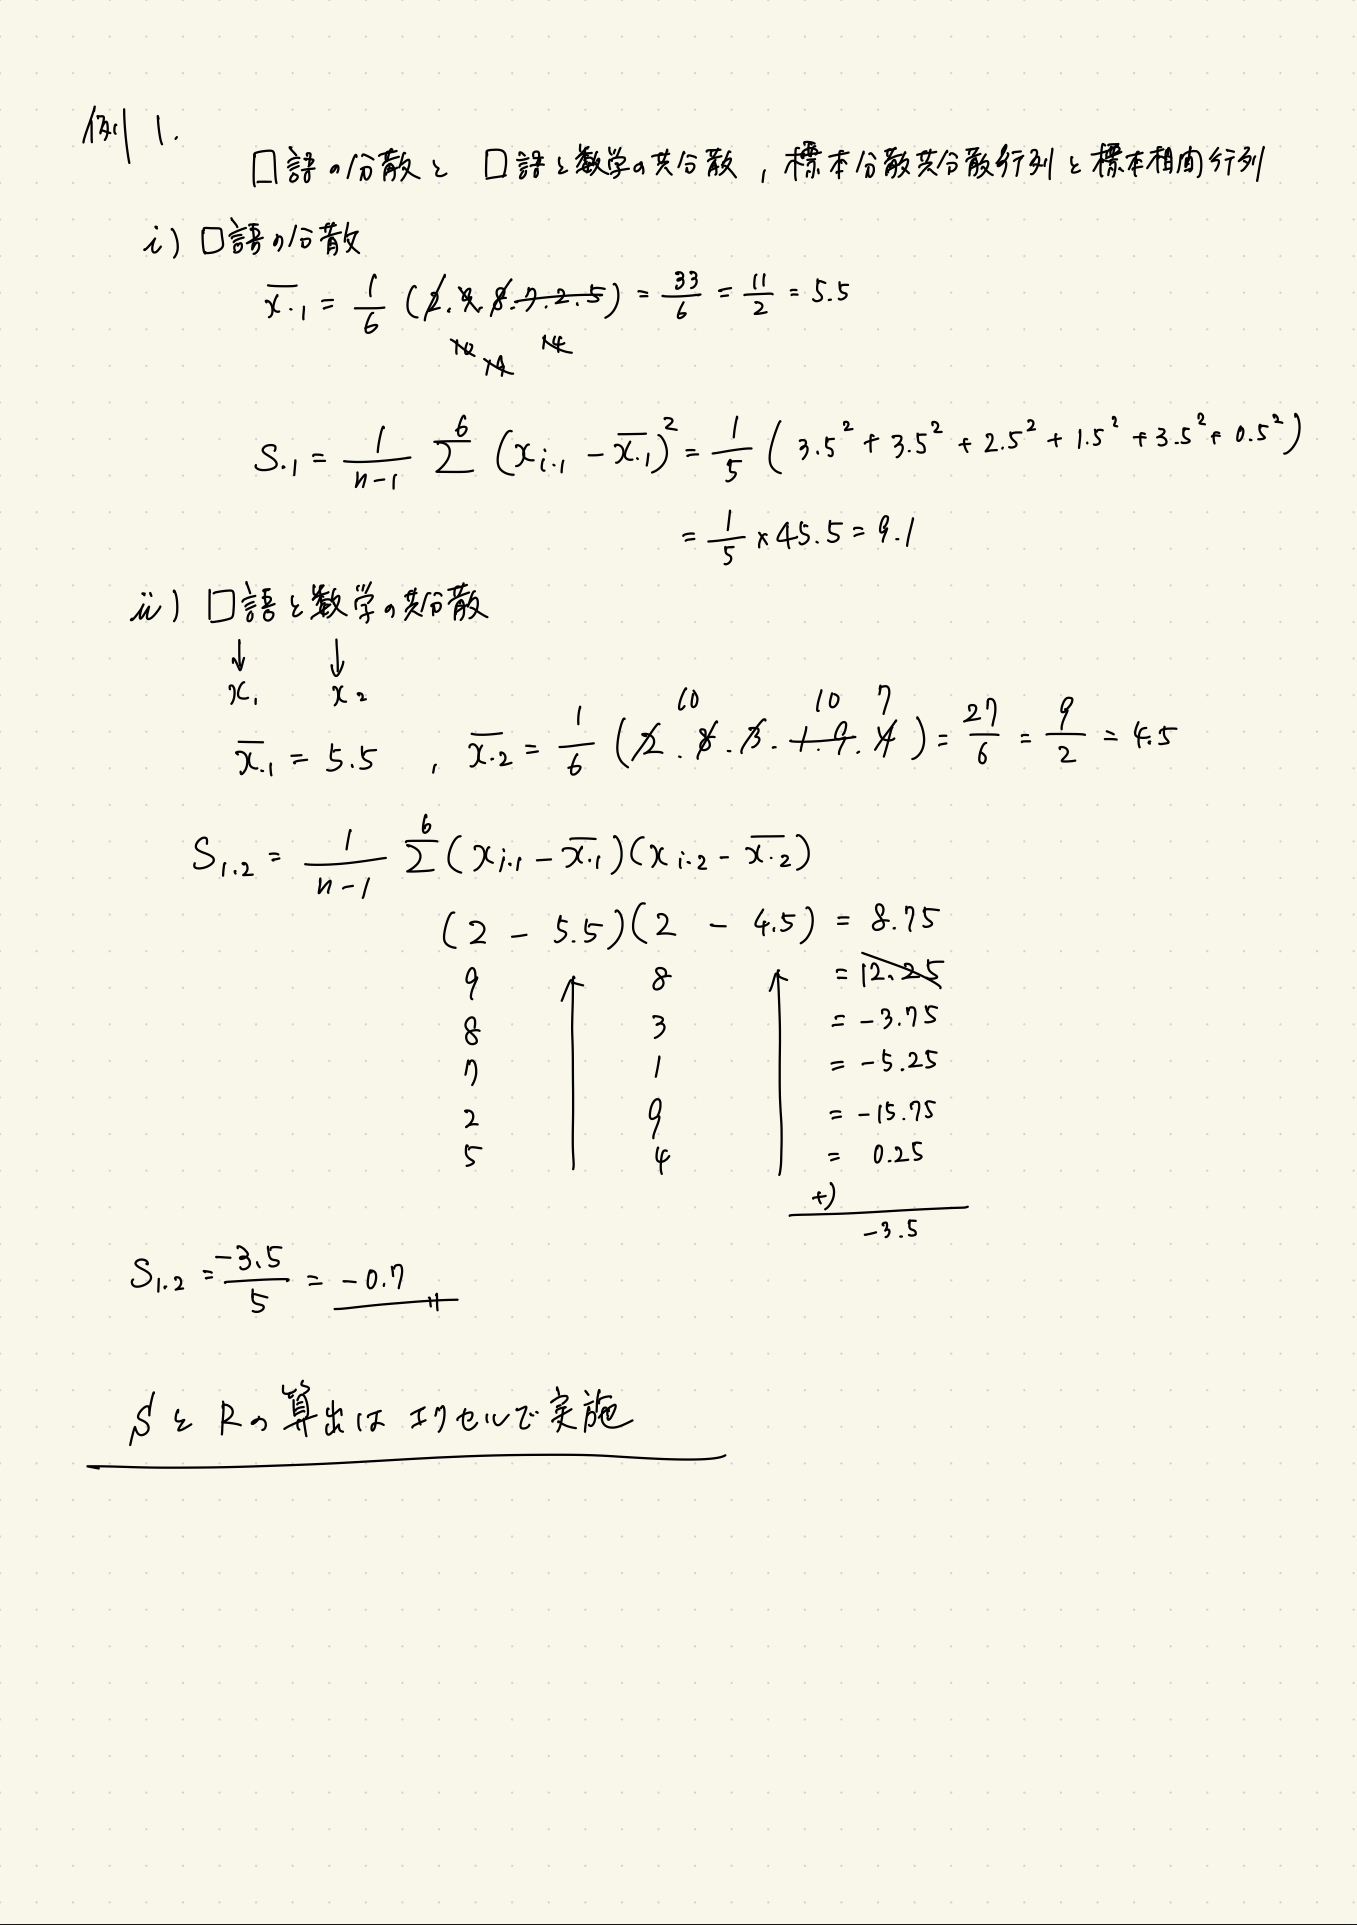 例1.
口語の分散と 口語と数学の共分散, 標本分散共分散行列と標本相関行列
i) 口語の分散
x̄.₁ = 1/6 (2.9.8.7.2.5) = 33/6 = 11/2 = 5.5
10 19 14
S.₁ = 1/(n-1) Σ⁶ (xᵢ.₁ - x̄.₁)² = 1/5 (3.5² + 3.5² + 2.5² + 1.5² + 3.5² + 0.5²)
= 1/5 × 45.5 = 9.1
ii) 口語と数学の共分散
↓ ↓
x₁ x₂
10 10 7
x̄.₁ = 5.5 , x̄.₂ = 1/6 (2.8.3.1.9.4) = 27/6 = 9/2 = 4.5
S₁.₂ = 1/(n-1) Σ⁶ (xᵢ.₁ - x̄.₁)(xᵢ.₂ - x̄.₂)
(2 - 5.5)(2 - 4.5) = 8.75
9 ↑ 8 ↑ = 12.25
8 3 = -3.75
7 1 = -5.25
2 9 = -15.75
5 4 = 0.25
+)
-3.5
S₁.₂ = -3.5/5 = -0.7
SとRの算出はエクセルで実施